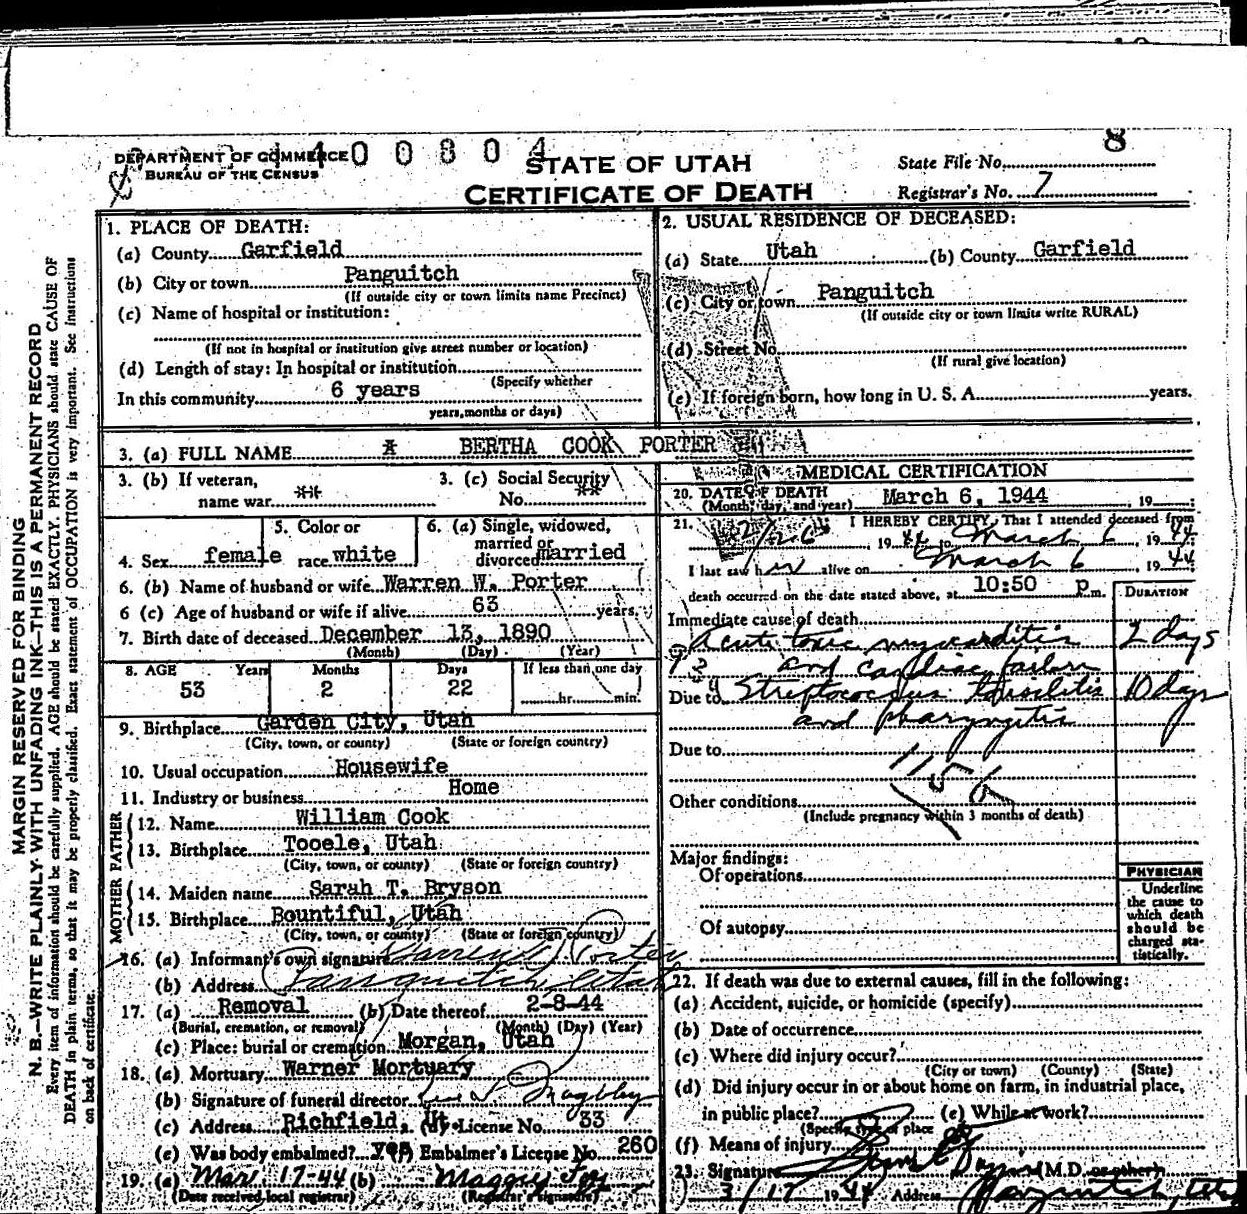 8
DEPARTMENT OF COMMERCE
BUREAU OF THE CENSUS
400804
STATE OF UTAH
CERTIFICATE OF DEATH
State File No.
Registrar's No. 7
MARGIN RESERVED FOR BINDING
N. B.—WRITE PLAINLY WITH UNFADING INK—THIS IS A PERMANENT RECORD
Every item of information should be carefully supplied. AGE should be stated EXACTLY. PHYSICIANS should state CAUSE OF
DEATH in plain terms, so that it may be properly classified. Exact statement of OCCUPATION is very important. See instructions
on back of certificate.
1. PLACE OF DEATH:
(a) County Garfield
(b) City or town Panguitch
(If outside city or town limits name Precinct)
(c) Name of hospital or institution:
(If not in hospital or institution give street number or location)
(d) Length of stay: In hospital or institution
(Specify whether
In this community 6 years
years, months or days)
2. USUAL RESIDENCE OF DECEASED:
(a) State Utah (b) County Garfield
(c) City or town Panguitch
(If outside city or town limits write RURAL)
(d) Street No.
(If rural give location)
(e) If foreign born, how long in U. S. A. years.
3. (a) FULL NAME BERTHA COOK PORTER
3. (b) If veteran, name war **
3. (c) Social Security No. **
4. Sex female
5. Color or race white
6. (a) Single, widowed, married or divorced married
6. (b) Name of husband or wife Warren W. Porter
6 (c) Age of husband or wife if alive 63 years
7. Birth date of deceased December 13, 1890
(Month) (Day) (Year)
8. AGE Years Months Days If less than one day
53 2 22 hr. min.
9. Birthplace Garden City, Utah
(City, town, or county) (State or foreign country)
10. Usual occupation Housewife
11. Industry or business Home
FATHER
12. Name William Cook
13. Birthplace Tooele, Utah
(City, town, or county) (State or foreign country)
MOTHER
14. Maiden name Sarah T. Bryson
15. Birthplace Bountiful, Utah
(City, town, or county) (State or foreign country)
16. (a) Informant's own signature Warren W Porter
(b) Address Panguitch Utah
17. (a) Removal (b) Date thereof 2-8-44
(Burial, cremation, or removal) (Month) (Day) (Year)
(c) Place: burial or cremation Morgan, Utah
18. (a) Mortuary Warner Mortuary
(b) Signature of funeral director
(c) Address Richfield, Ut. (d) License No. 33
(e) Was body embalmed? yes Embalmer's License No. 260
19. (a) Mar 17-44 (b) Maggie Foy
(Date received local registrar) (Registrar's signature)
MEDICAL CERTIFICATION
20. DATE OF DEATH March 6, 1944, 19
(Month, day, and year)
21. I HEREBY CERTIFY, That I attended deceased from
2/26, 1944 to March 6, 1944
I last saw her alive on March 6, 1944
death occurred on the date stated above, at 10:50 p.m.
DURATION
Immediate cause of death
Acute toxic myocarditis 2 days
and cardiac failure
Due to Streptococcus tonsilitis 10 days
and pharyngitis
Due to
115b
Other conditions
(Include pregnancy within 3 months of death)
Major findings:
Of operations
Of autopsy
PHYSICIAN
Underline
the cause to
which death
should be
charged sta-
tistically.
22. If death was due to external causes, fill in the following:
(a) Accident, suicide, or homicide (specify)
(b) Date of occurrence
(c) Where did injury occur?
(City or town) (County) (State)
(d) Did injury occur in or about home on farm, in industrial place,
in public place? (e) While at work?
(Specify type of place
(f) Means of injury
23. Signature (M.D. or other)
3/17 1944 Address Panguitch, Utah